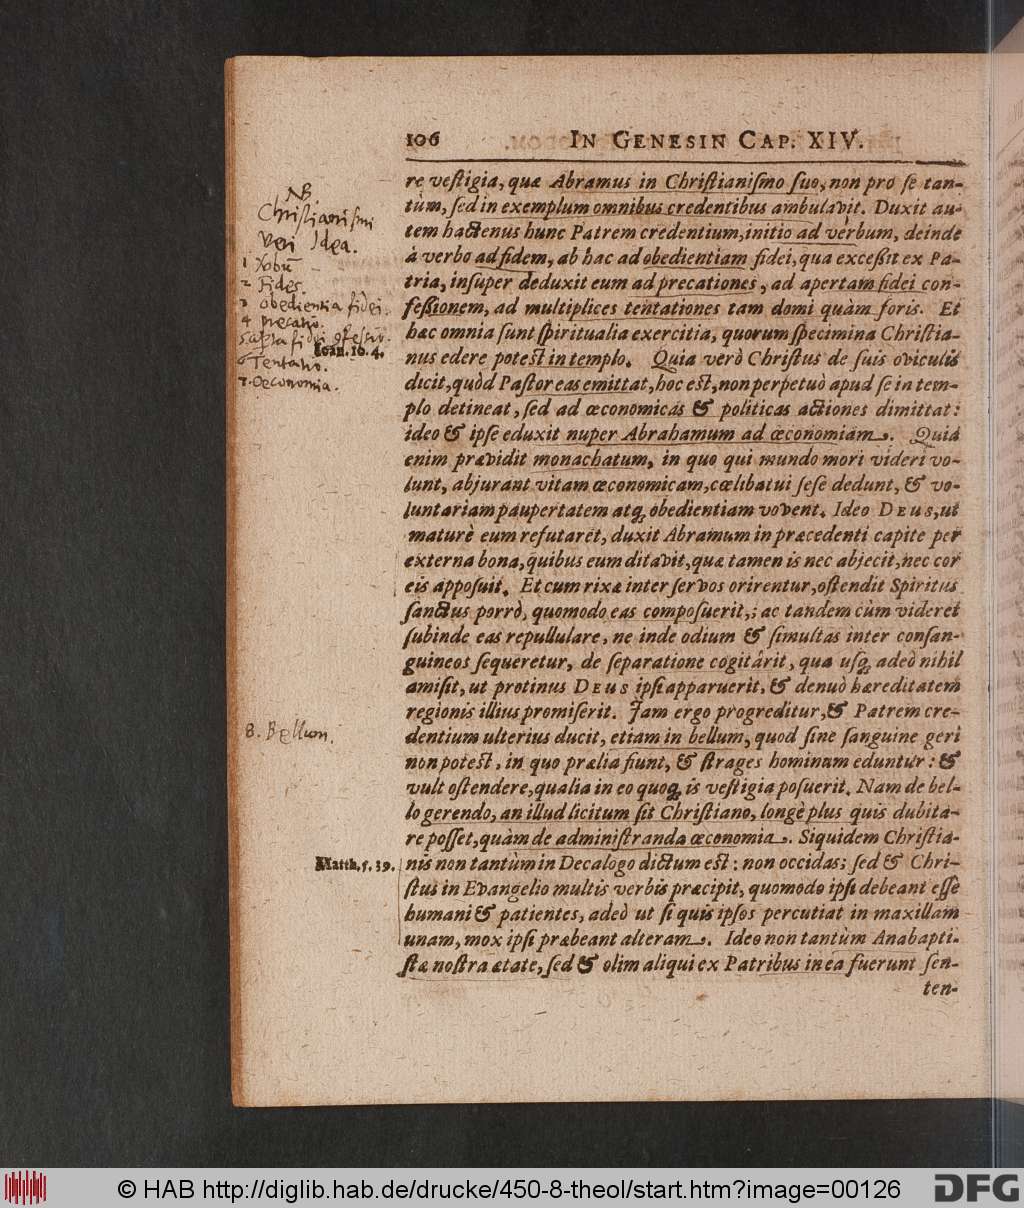 106 IN GENESIN CAP. XIV.
re veſtigia, quæ Abramus in Chriſtianiſmo ſuo, non pro ſe tan-
tùm, ſed in exemplum omnibus credentibus ambulavit. Duxit au-
tem hactenus hunc Patrem credentium, initio ad verbum, deinde
à verbo ad fidem, ab hac ad obedientiam fidei, qua exceßit ex Pa-
tria, inſuper deduxit eum ad precationes, ad apertam fidei con-
feßionem, ad multiplices tentationes tam domi quàm foris. Et
hæc omnia ſunt ſpiritualia exercitia, quorum ſpecimina Chriſtia-
nus edere poteſt in templo. Quia verò Chriſtus de ſuis oviculis
dicit, quòd Paſtor eas emittat, hoc eſt, non perpetuò apud ſe in tem-
plo detineat, ſed ad œconomicas & politicas actiones dimittat:
ideo & ipſe eduxit nuper Abrahamum ad œconomiam. Quia
enim prævidit monachatum, in quo qui mundo mori videri vo-
lunt, abjurant vitam œconomicam, cœlibatui ſeſe dedunt, & vo-
luntariam paupertatem atq; obedientiam vovent. Ideo DEUS, ut
maturè eum refutaret, duxit Abramum in præcedenti capite per
externa bona, quibus eum ditavit, quæ tamen is nec abjecit, nec cor
eis appoſuit. Et cum rixæ inter ſervos orirentur, oſtendit Spiritus
ſanctus porrò, quomodo eas compoſuerit,; ac tandem cùm videret
ſubinde eas repullulare, ne inde odium & ſimultas inter conſan-
guineos ſequeretur, de ſeparatione cogitârit, qua uſq; adeò nihil
amiſit, ut protinus DEUS ipſi apparuerit, & denuò hæreditatem
regionis illius promiſerit. Jam ergo progreditur, & Patrem cre-
dentium ulterius ducit, etiam in bellum, quod ſine ſanguine geri
non poteſt, in quo prælia fiunt, & ſtrages hominum eduntur: &
vult oſtendere, qualia in eo quoq; is veſtigia poſuerit. Nam de bel-
lo gerendo, an illud licitum ſit Chriſtiano, longè plus quis dubita-
re poſſet, quàm de adminiſtranda œconomia. Siquidem Chriſtia-
nis non tantùm in Decalogo dictum eſt: non occidas; ſed & Chri-
ſtus in Evangelio multis verbis præcipit, quomodo ipſi debeant eſſe
humani & patientes, adeò ut ſi quis ipſos percutiat in maxillam
unam, mox ipſi præbeant alteram. Ideo non tantùm Anabapti-
ſtæ noſtra ætate, ſed & olim aliqui ex Patribus in ea fuerunt ſen-
ten-
NB.
Chriſtianiſmi
Veri Idea.
1
2 Fides.
3 obedientia fidei.
4 precatio.
5 fidei
Ioan. 10. 4.
6 Tentatio.
7. Oeconomia.
8. Bellum.
Matth. 5. 39.
© HAB http://diglib.hab.de/drucke/450-8-theol/start.htm?image=00126
DFG